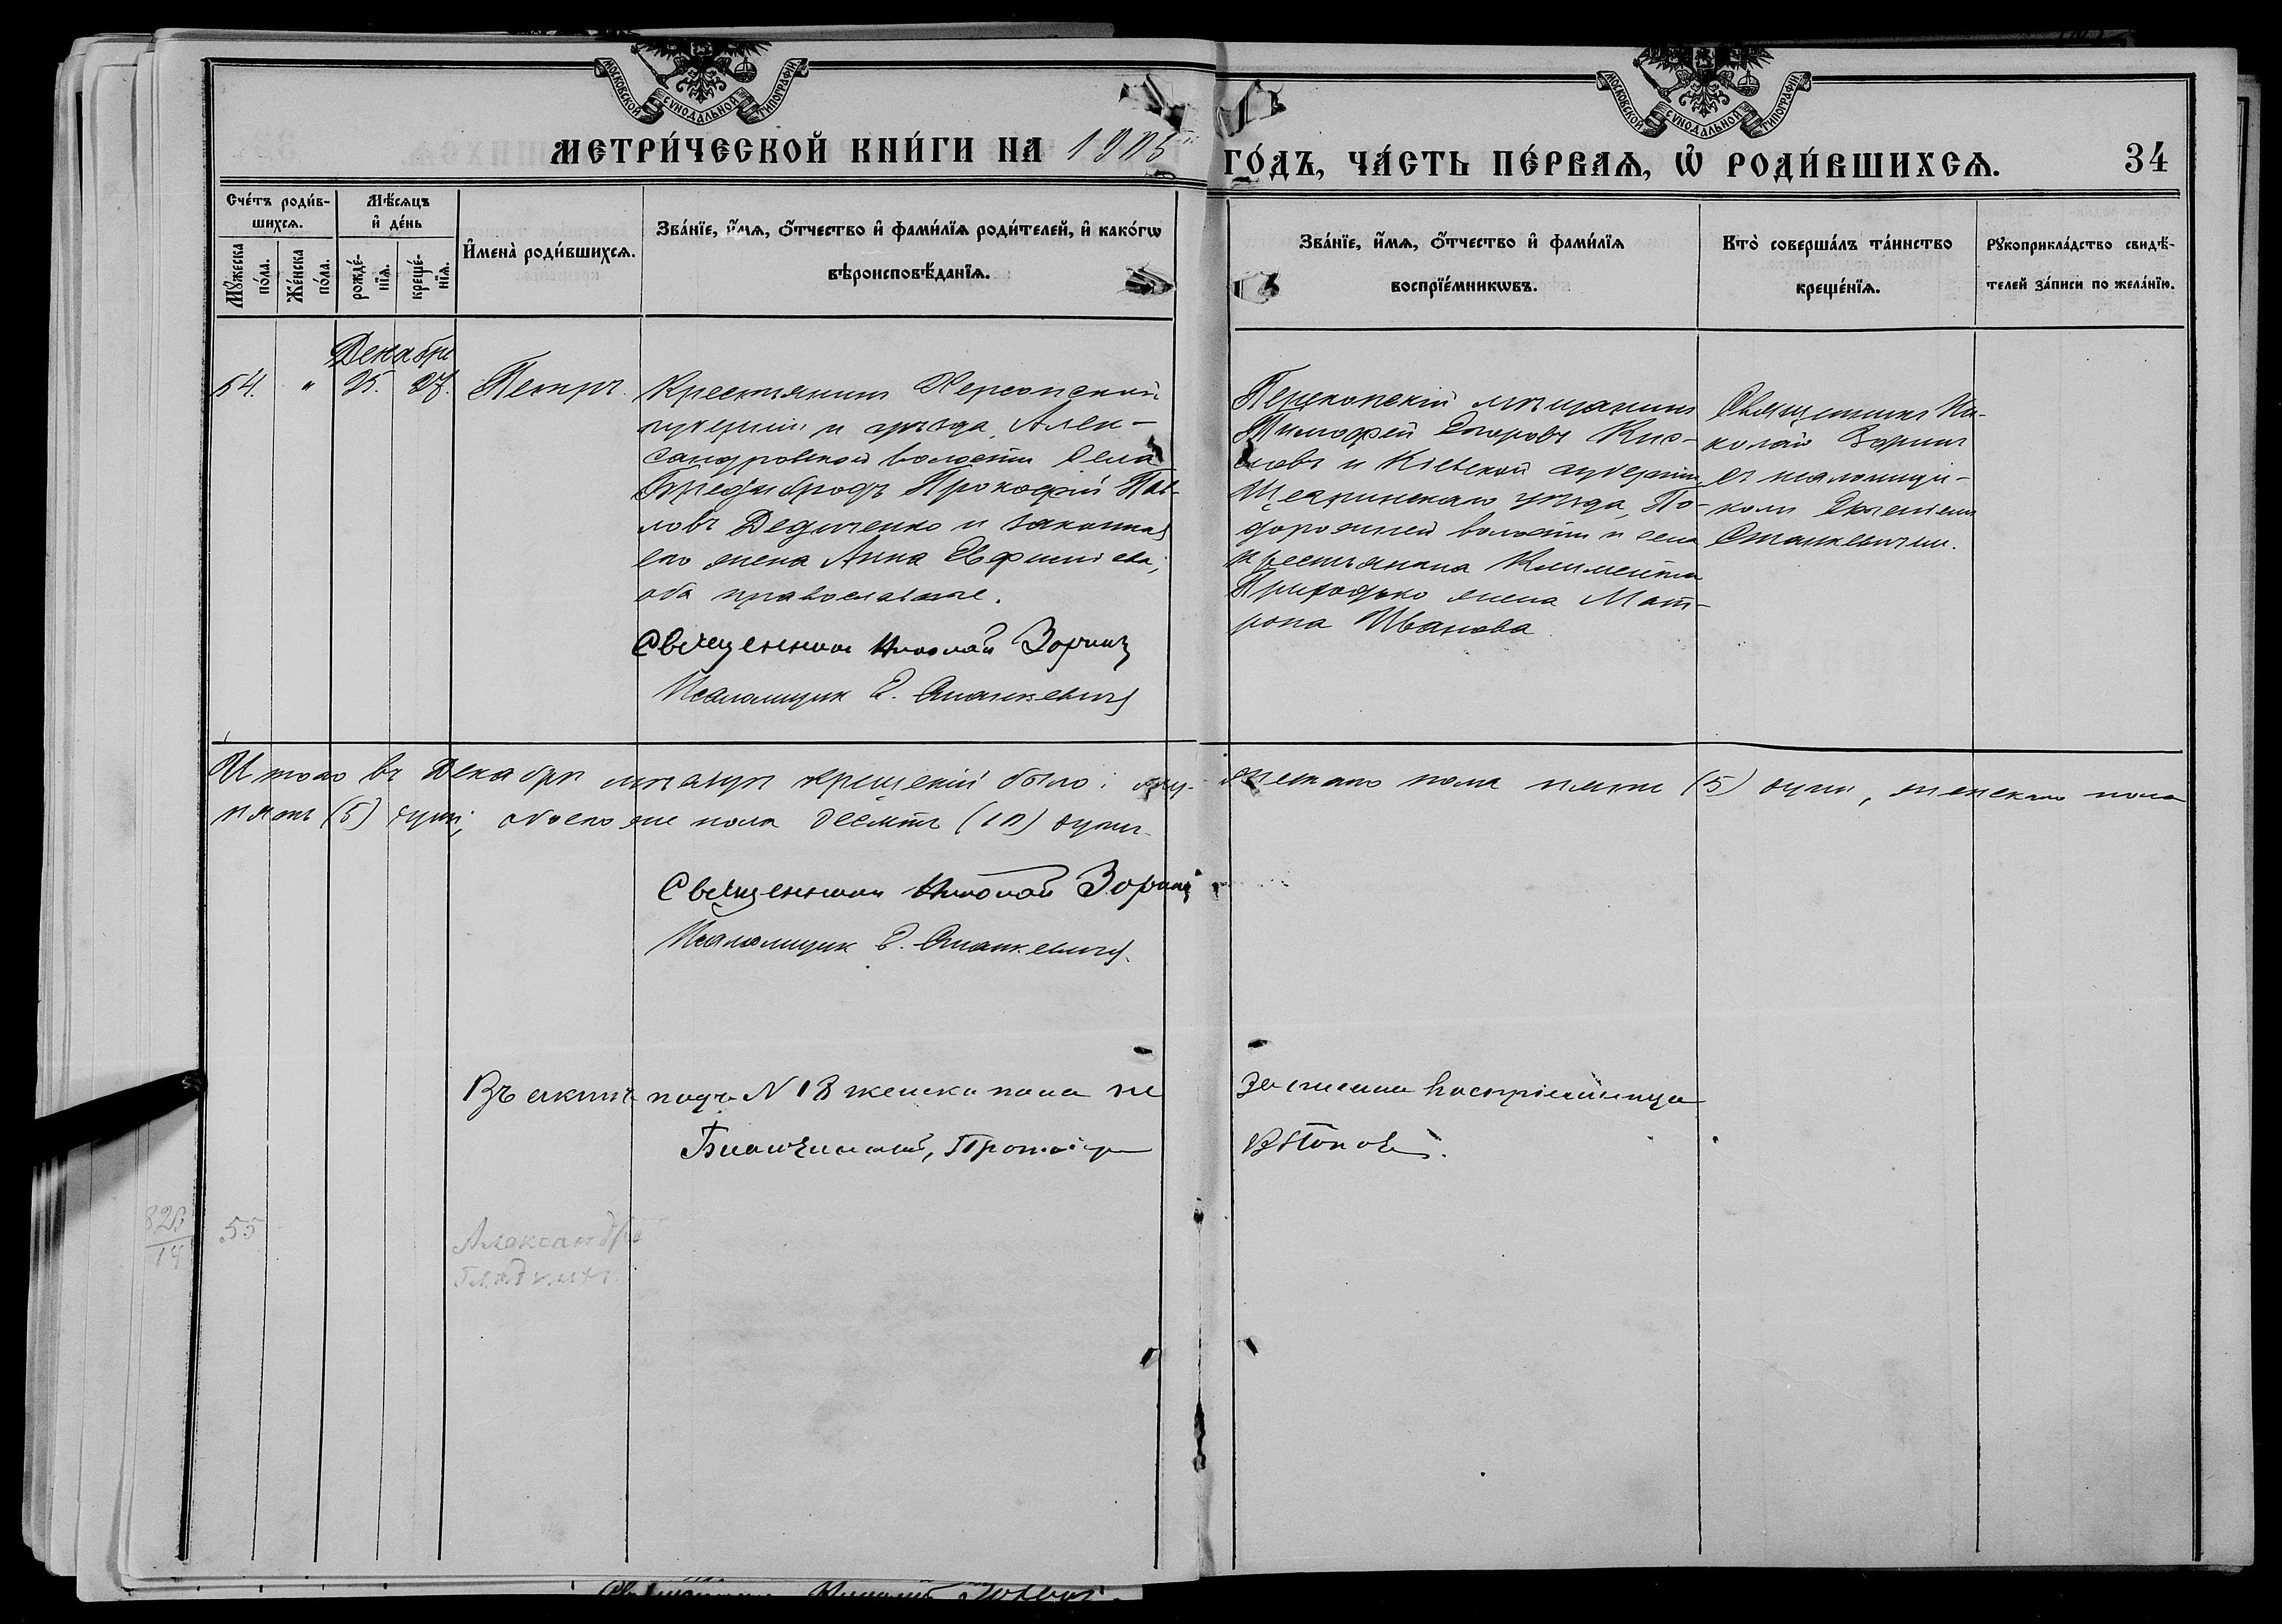 МОСКОВСКОЙ СУНОДАЛЬНОЙ ТИПОГРАФІИ
МОСКОВСКОЙ СУНОДАЛЬНОЙ ТИПОГРАФІИ
МЕТРИ́ЧЕСКОЙ КНИ́ГИ НА 1905
ГО́ДЪ, ЧА́СТЬ ПЕ́РВАѦ, Ѡ҆ РОДИ́ВШИХСѦ.
34
Счéтъ роди́в-
шихсѧ.
Мꙋ́жеска
по́ла.
Же́нска
по́ла.
Мѣ́сѧцъ
и҆ де́нь
рожде́-
нїѧ.
креще́-
нїѧ.
И҆менà роди́вшихсѧ.
Звáнїе, и҆́мѧ, ѻ҆́тчество и҆ фами́лїѧ роди́телей, и҆ како́гѡ
вѣроисповѣ́данїѧ.
Звáнїе, и҆́мѧ, ѻ҆́тчество и҆ фами́лїѧ
воспрїе́мникѡвъ.
Кто̀ соверша́лъ та́инство
креще́нїѧ.
Рꙋкоприкла́дство свидѣ́-
телей за́писи по жела́нїю.
Декабрь
54. " 25. 27. Петръ.
Крестьянинъ Херсонской
губерніи и уѣзда, Алек-
сандровской волости села
Прокофій Пав-
ловъ Дедиченко и законная
его жена Анна Евфиміева,
оба православные.
Священникъ Николай Зоринъ
Псаломщикъ Е. Станкевичъ
Перекопскій мѣщанинъ
Тимофей Егоровъ Кис-
and
ловъ и Кіевской губерніи
уѣзда, По-
дорожней волости и села
крестьянина Климента
Приходько жена Мат-
рона Иванова
Священникъ Ни-
колай Зоринъ
съ псаломщи-
комъ Евгеніемъ
Станкевичемъ.
Итого въ Декабрѣ мѣсяцѣ крещеній было: му-
жескаго пола пять (5) душъ, женскаго пола
пять (5) душъ, обоего же пола десять (10) душъ.
Священникъ Николай Зоринъ
Псаломщикъ Е. Станкевичъ.
Въ актѣ подъ N 18 женска пола не
записана воспріемница
Протоіерей
В Поповъ.
828
14
55
Александръ